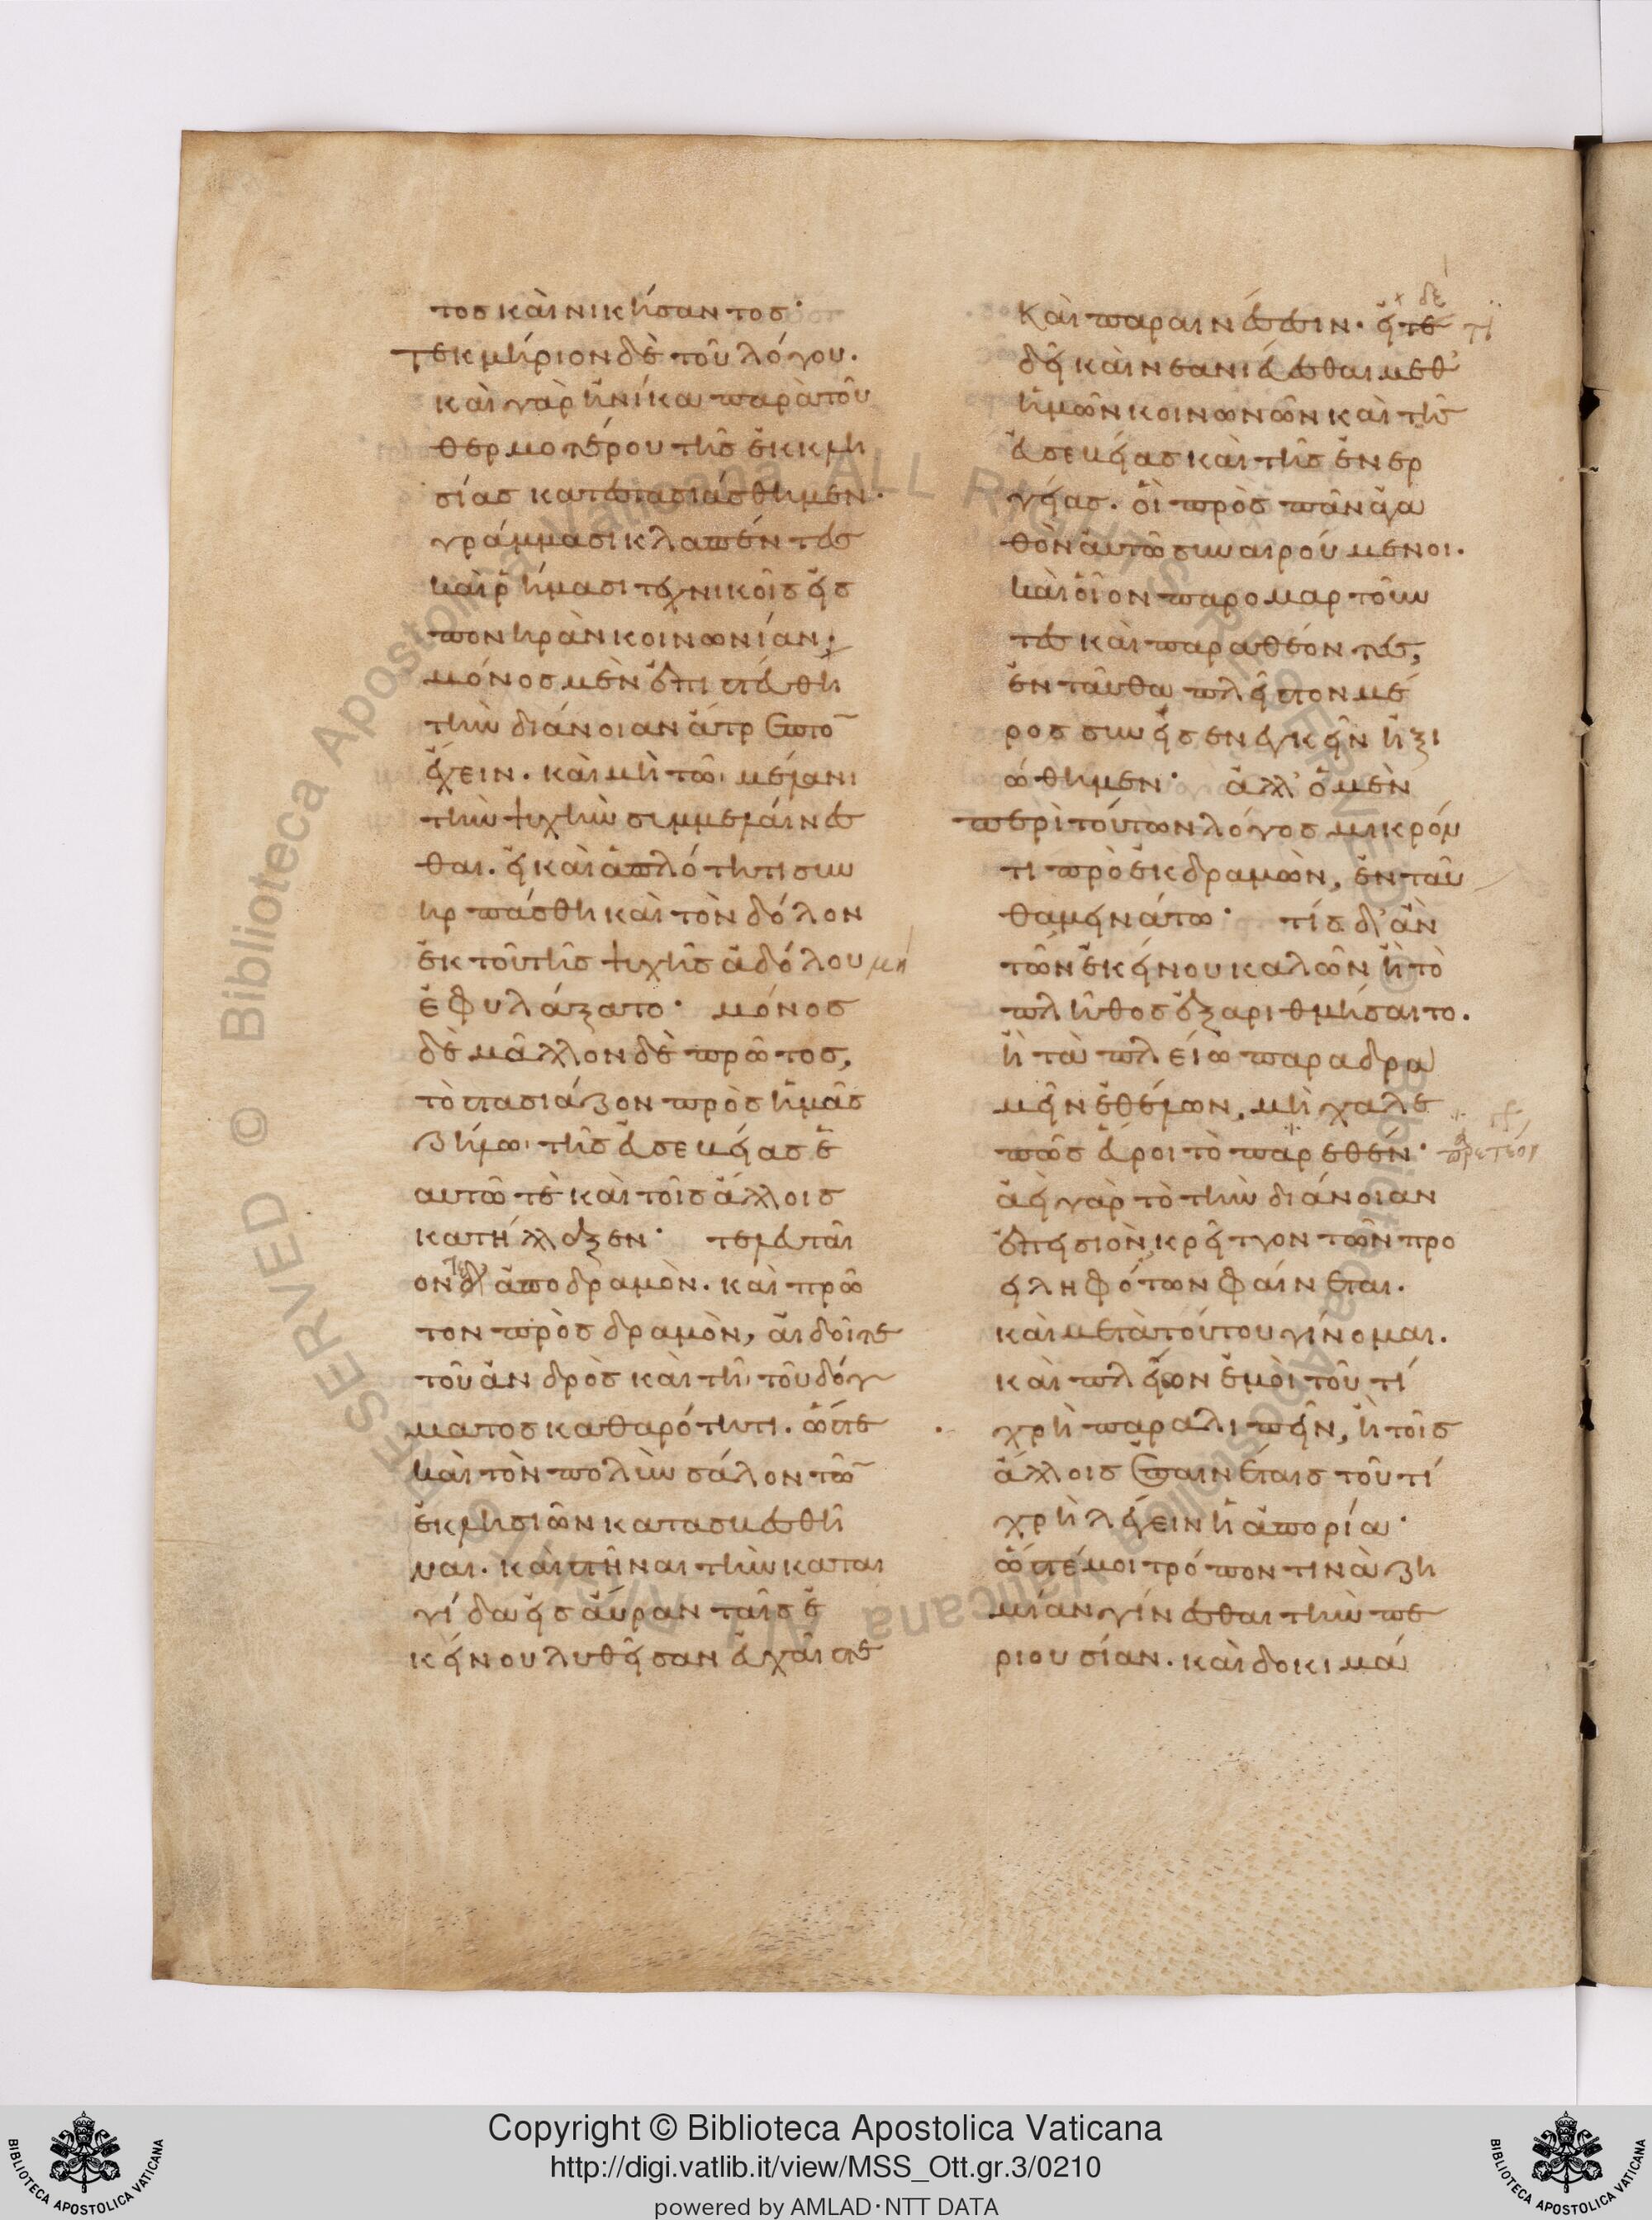 τος καὶ νικήσαντος·
τεκμήριον δὲ τοῦ λόγου.
καὶ γὰρ ἡνίκα παρὰ τοῦ
θερμοτέρου τῆς ἐκκλη
σίας κατεστασιάσθημεν·
γράμμασι κλαπέντες
καὶ ῥήμασι τεχνικοῖς εἰς
πονηρὰν κοινωνίαν·
μόνος μὲν ἐπιστεύθη
τὴν διάνοιαν ἄτρωτον
ἔχειν. καὶ μὴ τῶι μέλανι
τὴν ψυχὴν συμμελαίνες
θαι. εἰ καὶ ἁπλότητι συν
ηρπάσθη καὶ τὸν δόλον
ἐκ τοῦ τῆς ψυχῆς ἀδόλου μὴ
ἐφυλάξατο· μόνος
δὲ μᾶλλον δὲ πρῶτος,
τὸ στασιάζον πρὸς ἡμᾶς
ζήλωι τῆς εὐσεβείας ἑ
αυτῶ τὲ καὶ τοῖς ἄλλοις
κατήλλαξεν· τελευταῖ
ον δ' ἀποδραμὸν. καὶ πρῶ
τον προσδραμὸν, αἰδοῖ τε
τοῦ ἀνδρὸς καὶ τῆι τοῦ δόγ
ματος καθαρότητι. ὥστε
καὶ τὸν πολὺν σάλον τῶν
ἐκκλησιῶν κατασβεσθῆ
ναι. καὶ στῆναι τὴν καται
γίδα εἰς αὔραν ταῖς ἐ
κείνου λυθεῖσαν εὐχαῖς τε
Καὶ παραινέσεσιν. εἴτε
δεῖ καὶ νεανιεύεσθαι μεθ'
ἡμῶν κοινωνῶν καὶ τῆς
εὐσεβείας καὶ τῆς ἐνερ
γείας. οἳ πρὸς πᾶν ἀγα
θὸν αὐτῶ συναιρούμενοι.
καὶ οἷον παρομαρτοῦν
τες καὶ παραθέοντες,
ἐνταῦθα πλεῖστον μέ
ρος συνεισενεγκεῖν ἠξι
ώθημεν· ἀλλ' ὁ μὲν
περὶ τούτων λόγος μικρόν
τι προεκδραμὼν, ἐνταῦ
θα μεινάτω· τίς δ' ἂν
τῶν ἐκείνου καλῶν ἢ τὸ
πλῆθος ἐξαριθμήσαιτο.
ἢ τὰ πλείω παραδρα
μεῖν ἐθέλων, μὴ χαλε
πῶς εὕροι τὸ παρεθέν·
ἀεὶ γὰρ τὸ τὴν διάνοιαν
ἐπεισιὸν κρεῖττον τῶν προ
ειληφότων φαίνεται.
καὶ μετὰ τούτου γίνομαι.
καὶ πλεῖον ἐμοὶ τοῦ τί
χρὴ παραλιπεῖν, ἢ τοῖς
ἄλλοις ἐπαινέταις τοῦ τί
χρὴ λέγειν ἡ ἀπορία·
ὥστέ μοι τρόπον τινὰ ζη
μίαν γίνεσθαι τὴν πε
ριουσίαν. καὶ δοκιμά
Copyright © Biblioteca Apostolica Vaticana
http://digi.vatlib.it/view/MSS_Ott.gr.3/0210
powered by AMLAD·NTT DATA